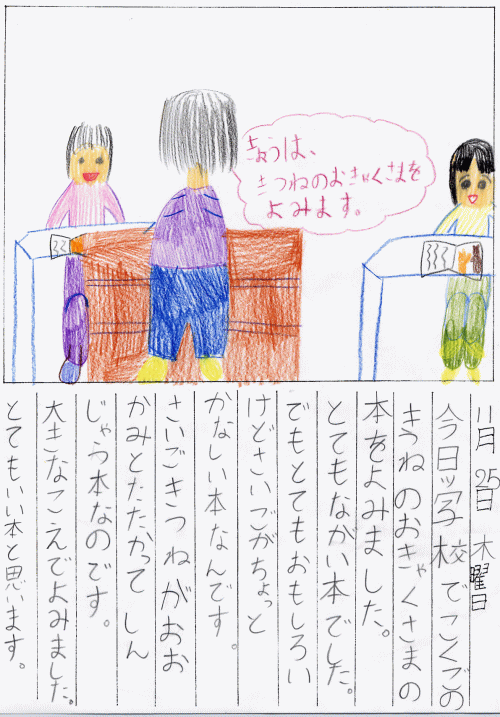 きょうは、
きつねのおきゃくさまを
よみます。
11月25日 木曜日
今日ッ学校でこくごの
きつねのおきゃくさまの
本をよみました。
とてもながい本でした。
でもとてもおもしろい
けどさいごがちょっと
かなしい本なんです。
さいごきつねがおお
かみとたたかって しん
じゃう本なのです。
大きなこえでよみました。
とてもいい本と思います。